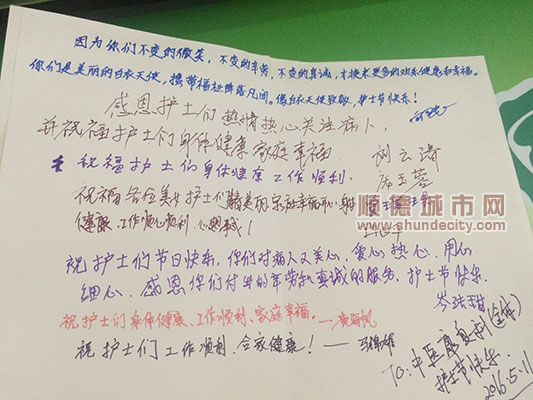 因为你们不变的微笑，不变的辛劳，不变的真诚，才换来更多的欢乐健康和幸福。
你们是美丽的白衣天使，携带福祉降落凡间。像白衣天使致敬，护士节快乐！
感恩护士们热情热心关注病人，
并祝福护士们身体健康 家庭幸福
祝福护士们身体健康 工作顺利，
祝福各位美女护士们 美丽 家庭幸福
健康，工作顺心顺利，心想事成！
顺德城市网
www.shundecity.com
祝护士们节日快乐，你们对病人又关心，爱心 热心，用心
细心，感恩你们付出的辛劳和真诚的服务，护士节快乐
祝护士们身体健康、工作顺利、家庭幸福。
祝护士们工作顺利，合家健康！
To：中医康复科（全体）
护士节快乐
2016.5.11